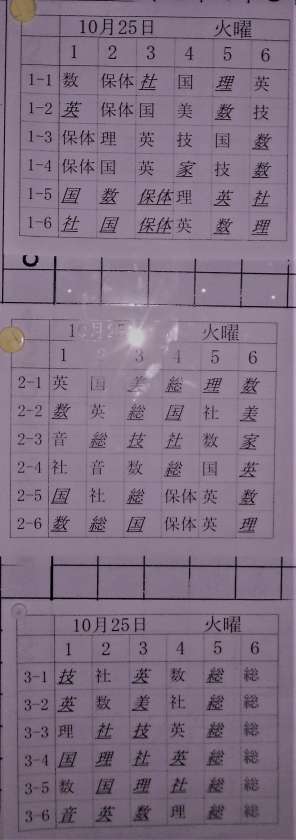 10月25日 火曜
1 2 3 4 5 6
1-1 数 保体 社 国 理 英
1-2 英 保体 国 美 数 技
1-3 保体 理 英 技 国 数
1-4 保体 国 英 家 技 数
1-5 国 数 保体 理 英 社
1-6 社 国 保体 英 数 理
10月25 火曜
1 2 3 4 5 6
2-1 英 国 美 総 理 数
2-2 数 英 総 国 社 美
2-3 音 総 技 社 数 家
2-4 社 音 数 総 国 英
2-5 国 社 総 保体 英 数
2-6 数 総 国 保体 英 理
10月25日 火曜
1 2 3 4 5 6
3-1 技 社 英 数 総 総
3-2 英 数 美 社 総 総
3-3 理 社 技 英 総 総
3-4 国 理 社 英 総 総
3-5 数 国 理 社 総 総
3-6 音 英 数 理 総 総